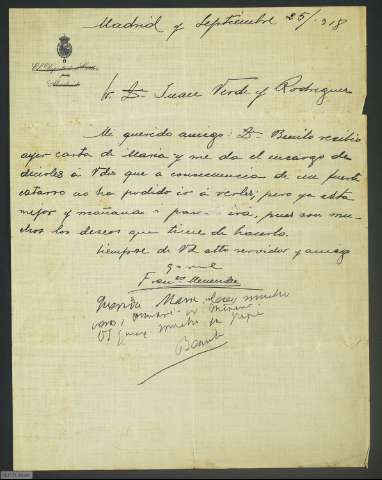 Madrid y Septiembre 25/918
El Diputado á Cortes
por
Sr. D. Juan Verde y Rodríguez
Mi querido amigo: D. Benito recibió
ayer carta de Maria y me da el encargo de
decirles á Vdes que a consecuencia de un fuerte
catarro no ha podido ir á verles; pero ya está
mejor y mañana ó pasado irá, pues son mu-
chos los deseos que tiene de hacerlo.
Siempre de Vd atto servidor y amigo
q. e. s. m.
Franco Menendez
Querida Maria
mañana
os quiere mucho tu Papa
Benito